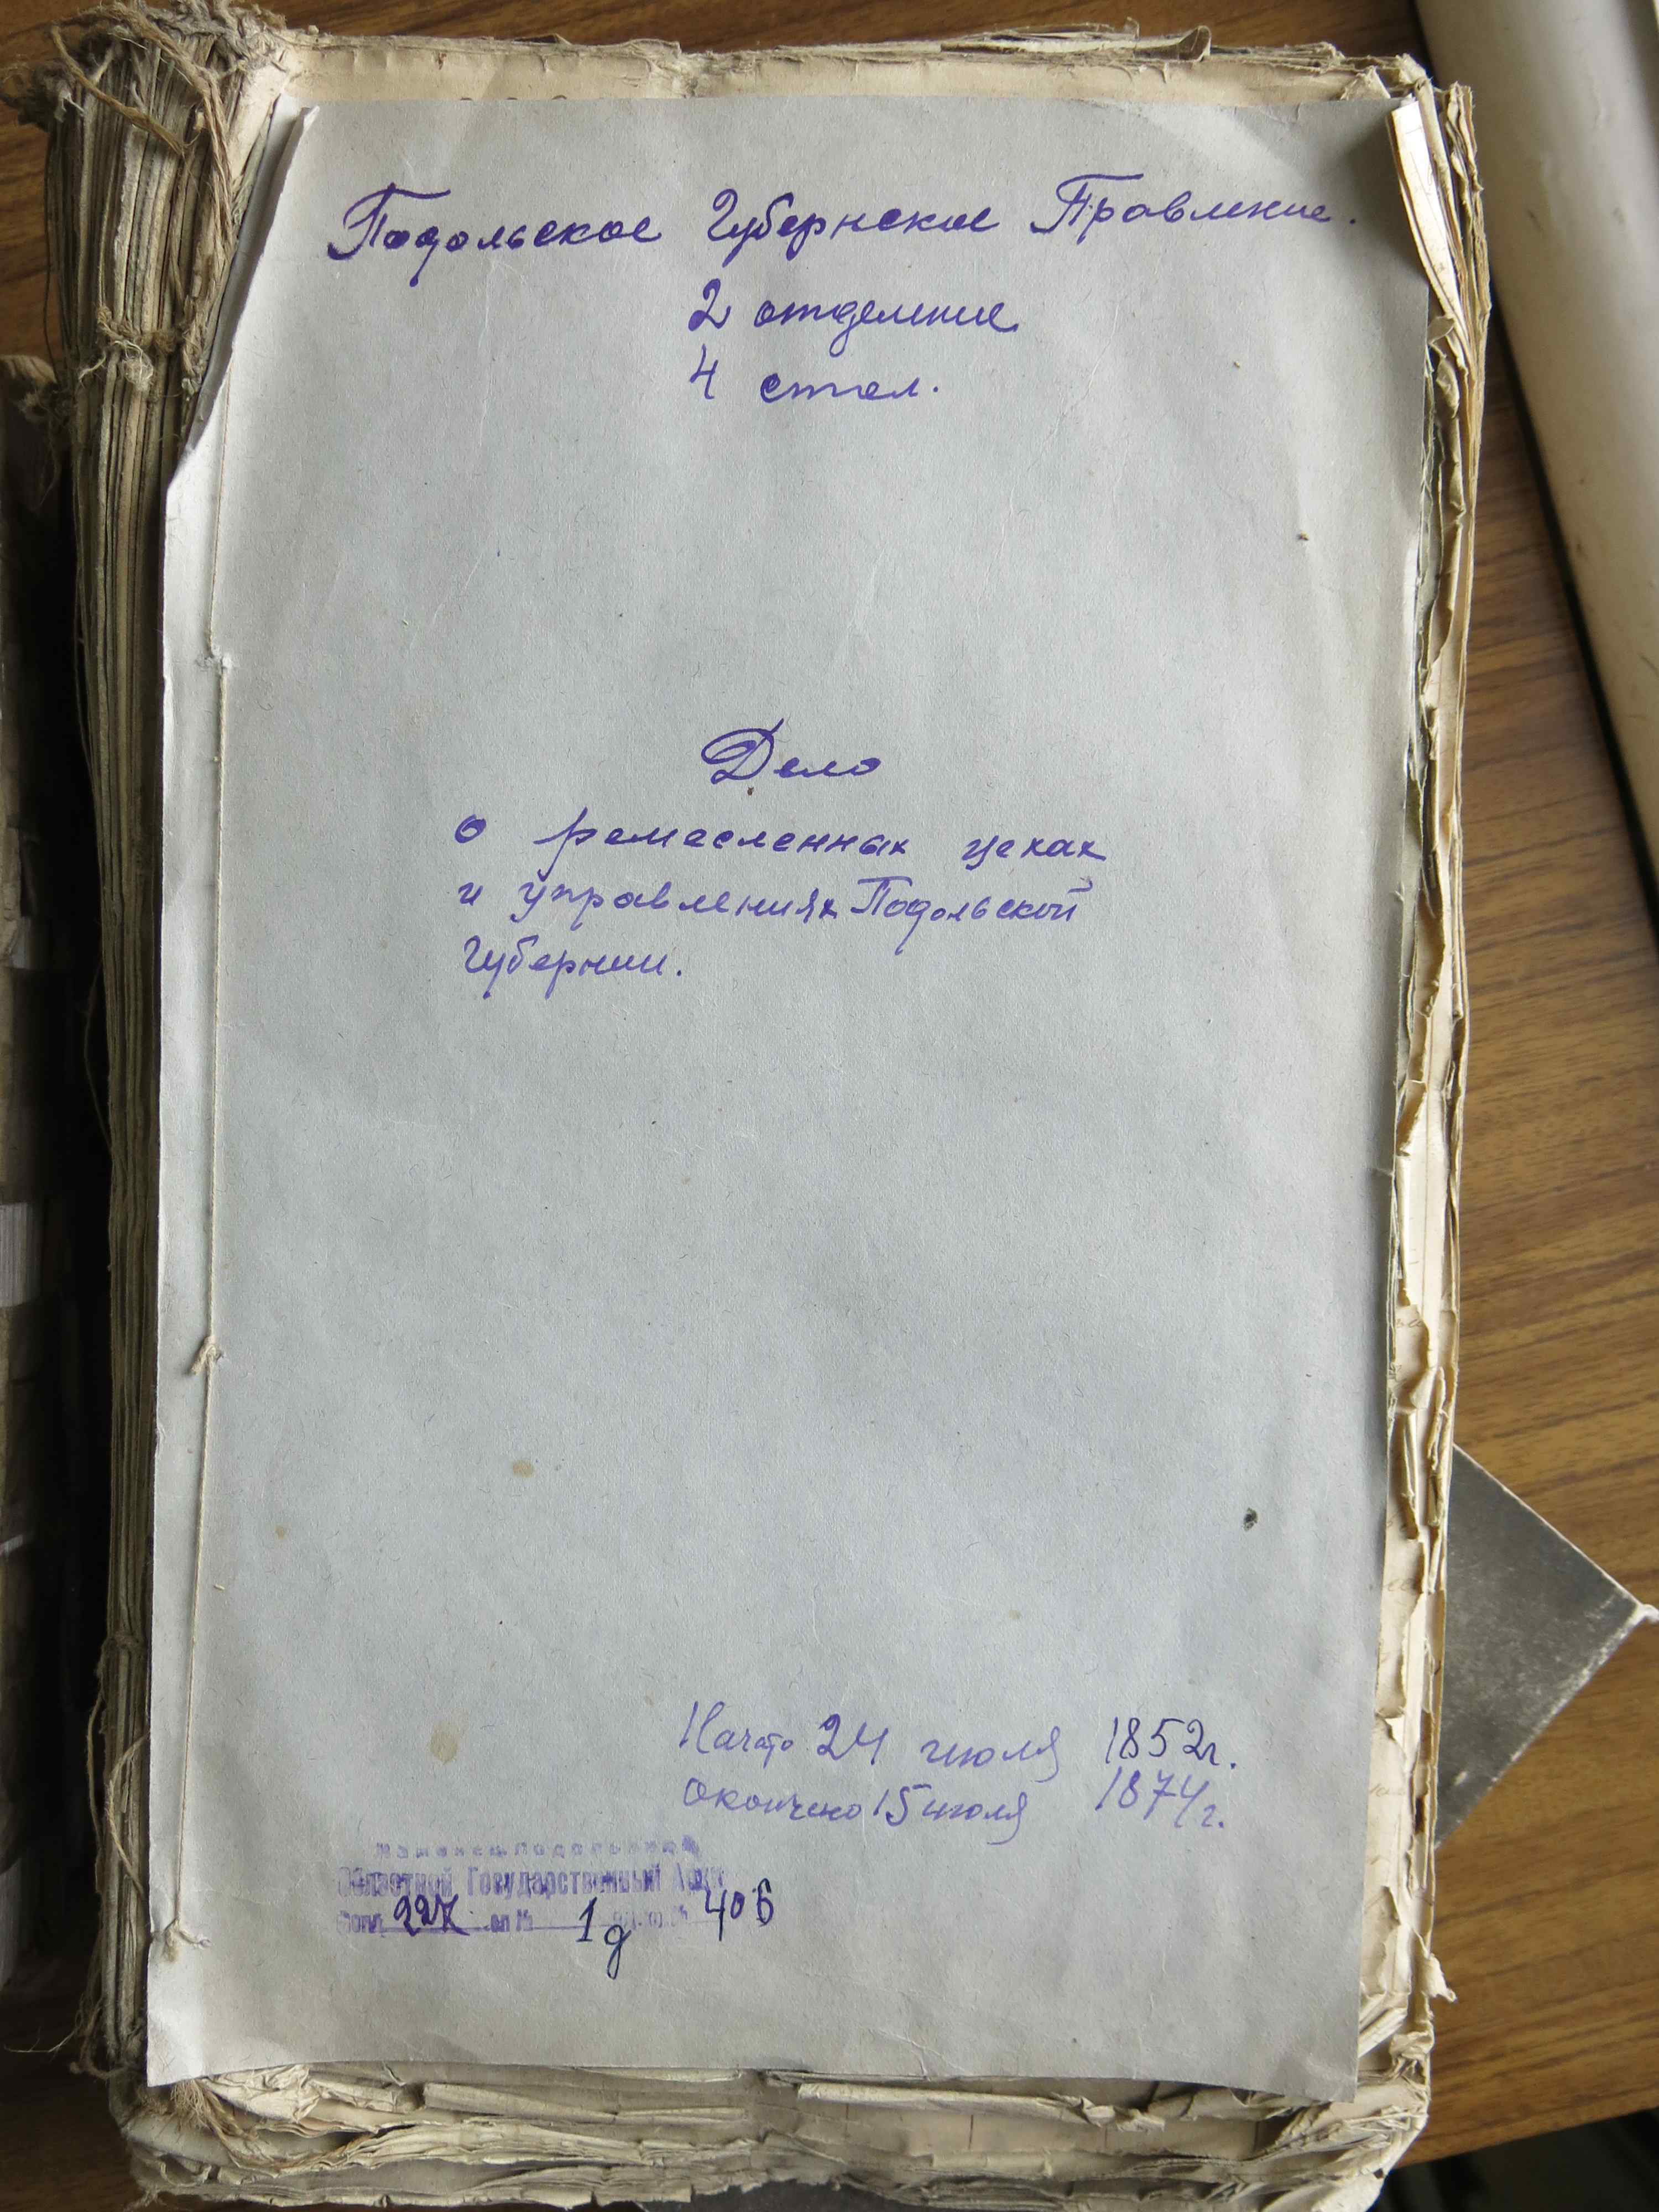 Подольское Губернское Правление.
2 отделение
4 стол.
Дело
о ремесленных цехах
и управлениях Подольской
Губернии.
Начато 24 июля 1852г.
Окончено 15 июля 1874г.
Каменец-Подольский
Областной Государственный Архив
Фонд 227 оп № 1 д 406